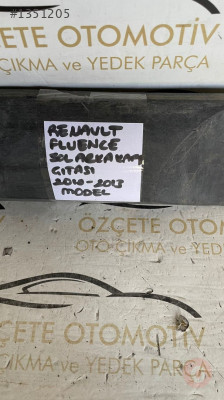 #1351205
ÖZÇETE OTOMOTİV
ÇIKMA ve YEDEK PARÇA
RENAULT
FLUENCE
SOL ARKA KAPI
ÇITASI
2010-2013
MODEL
ÖZÇETE OTOMOTİV
OTO ÇIKMA ve YEDEK PARÇA
ÖZÇETE OTOMOTİV
OTO ÇIKMA ve YEDEK PARÇA